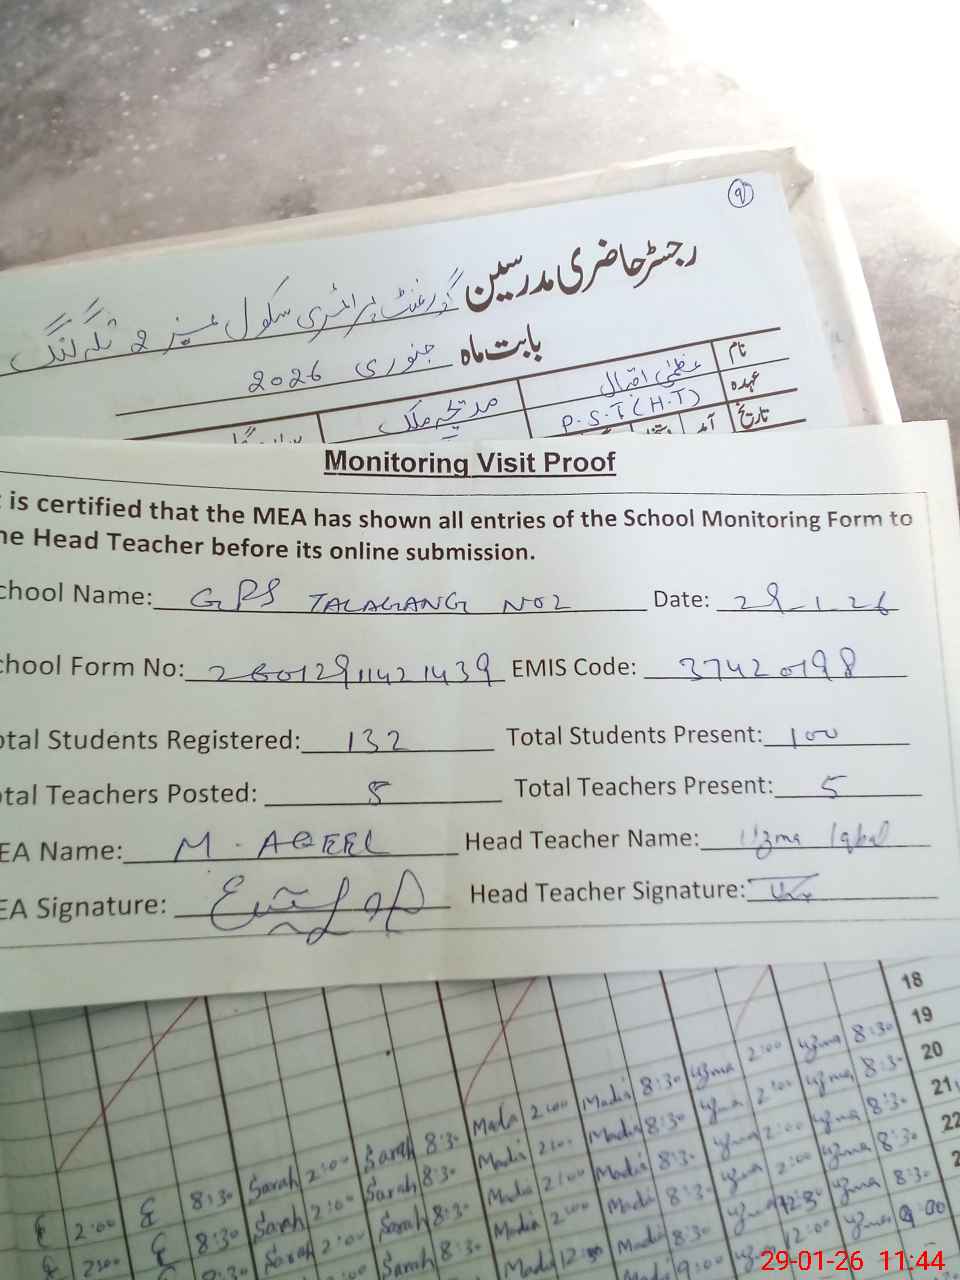 ۹
رجسٹر حاضری مدرسین گورنمنٹ پرائمری سکول نمبر 2 تلہ گنگ
بابت ماہ جنوری 2026
نام عظمیٰ اقبال مدیحہ ملک
عہدہ P.S.T (H.T)
تاریخ آمد
Monitoring Visit Proof
is certified that the MEA has shown all entries of the School Monitoring Form to
he Head Teacher before its online submission.
chool Name: GPS TALAGANG NO2 Date: 29-1-26
chool Form No: 26012911421439 EMIS Code: 37420198
otal Students Registered: 132 Total Students Present: 100
otal Teachers Posted: 5 Total Teachers Present: 5
EA Name: M. AQEEL Head Teacher Name: Uzma Iqbal
EA Signature: Head Teacher Signature:
18
19
Madia 2:00 Madia 8:30 Uzma 2:00 Uzma 8:30 20
Sarah 2:00 Sarah 8:30 Madia 2:00 Madia 8:30 Uzma 2:00 Uzma 8:30 21
2:00 8:30 Sarah 2:00 Sarah 8:30 Madia 2:00 Madia 8:30 Uzma 2:00 Uzma 8:30 22
2:00 8:30 Sarah 2:00 Sarah 8:30 Madia 2:00 Madia 8:30 Uzma 2:00 Uzma 8:30
8:30 Sarah 8:30 Madia 12:30 Madia 8:30 Uzma 12:30 Uzma 8:30
9:00 12:00 Uzma 9:00
29-01-26 11:44